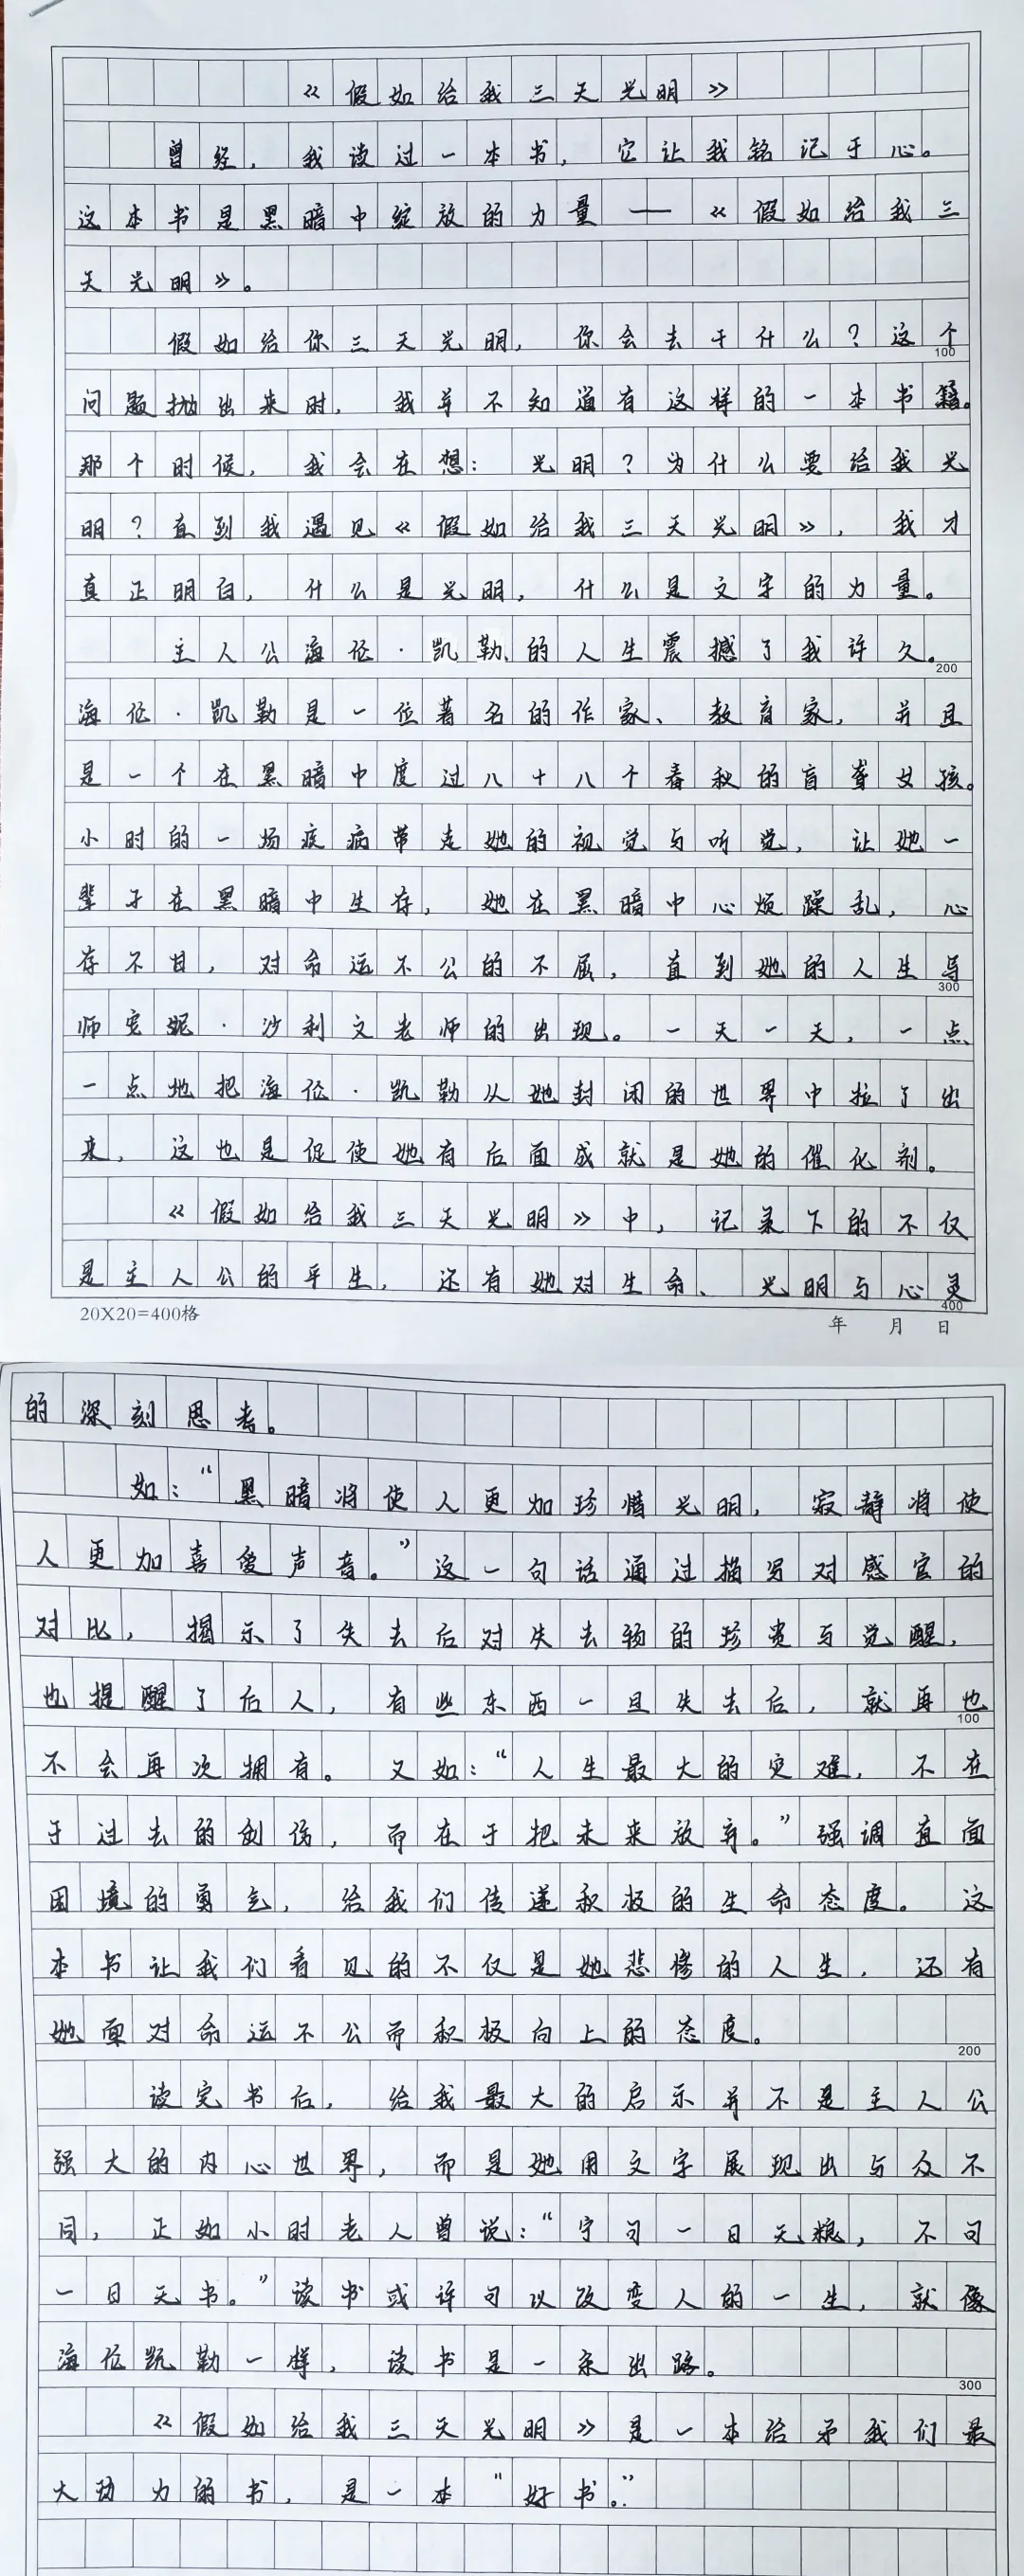 《假如给我三天光明》
曾经，我读过一本书，它让我铭记于心。
这本书是黑暗中绽放的力量——《假如给我三
天光明》。
假如给你三天光明，你会去干什么？这个
100
问题抛出来时，我并不知道有这样的一本书籍。
那个时候，我会在想：光明？为什么要给我光
明？直到我遇见《假如给我三天光明》，我才
真正明白，什么是光明，什么是文字的力量。
主人公海伦·凯勒的人生震撼了我许久。
200
海伦·凯勒是一位著名的作家、教育家，并且
是一个在黑暗中度过八十八个春秋的盲聋女孩。
小时的一场疾病带走她的视觉与听觉，让她一
辈子在黑暗中生存，她在黑暗中心烦躁乱，心
存不甘，对命运不公的不屈，直到她的人生导
300
师安妮·沙利文老师的出现。一天一天，一点
一点地把海伦·凯勒从她封闭的世界中拉了出
来，这也是促使她有后面成就是她的催化剂。
《假如给我三天光明》中，记录下的不仅
是主人公的平生，还有她对生命、光明与心灵
400
20X20=400格
年 月 日
的深刻思考。
如：“黑暗将使人更加珍惜光明，寂静将使
人更加喜爱声音。”这一句话通过描写对感官的
对比，揭示了失去后对失去物的珍贵与觉醒，
也提醒了后人，有些东西一旦失去后，就再也
100
不会再次拥有。又如：“人生最大的灾难，不在
于过去的创伤，而在于把未来放弃。”强调直面
困境的勇气，给我们传递积极的生命态度。这
本书让我们看见的不仅是她悲惨的人生，还有
她面对命运不公而积极向上的态度。
200
读完书后，给我最大的启示并不是主人公
强大的内心世界，而是她用文字展现出与众不
同，正如小时老人曾说：“宁可一日无粮，不可
一日无书。”读书或许可以改变人的一生，就像
海伦凯勒一样，读书是一条出路。
300
《假如给我三天光明》是一本给予我们最
大动力的书，是一本“好书。”